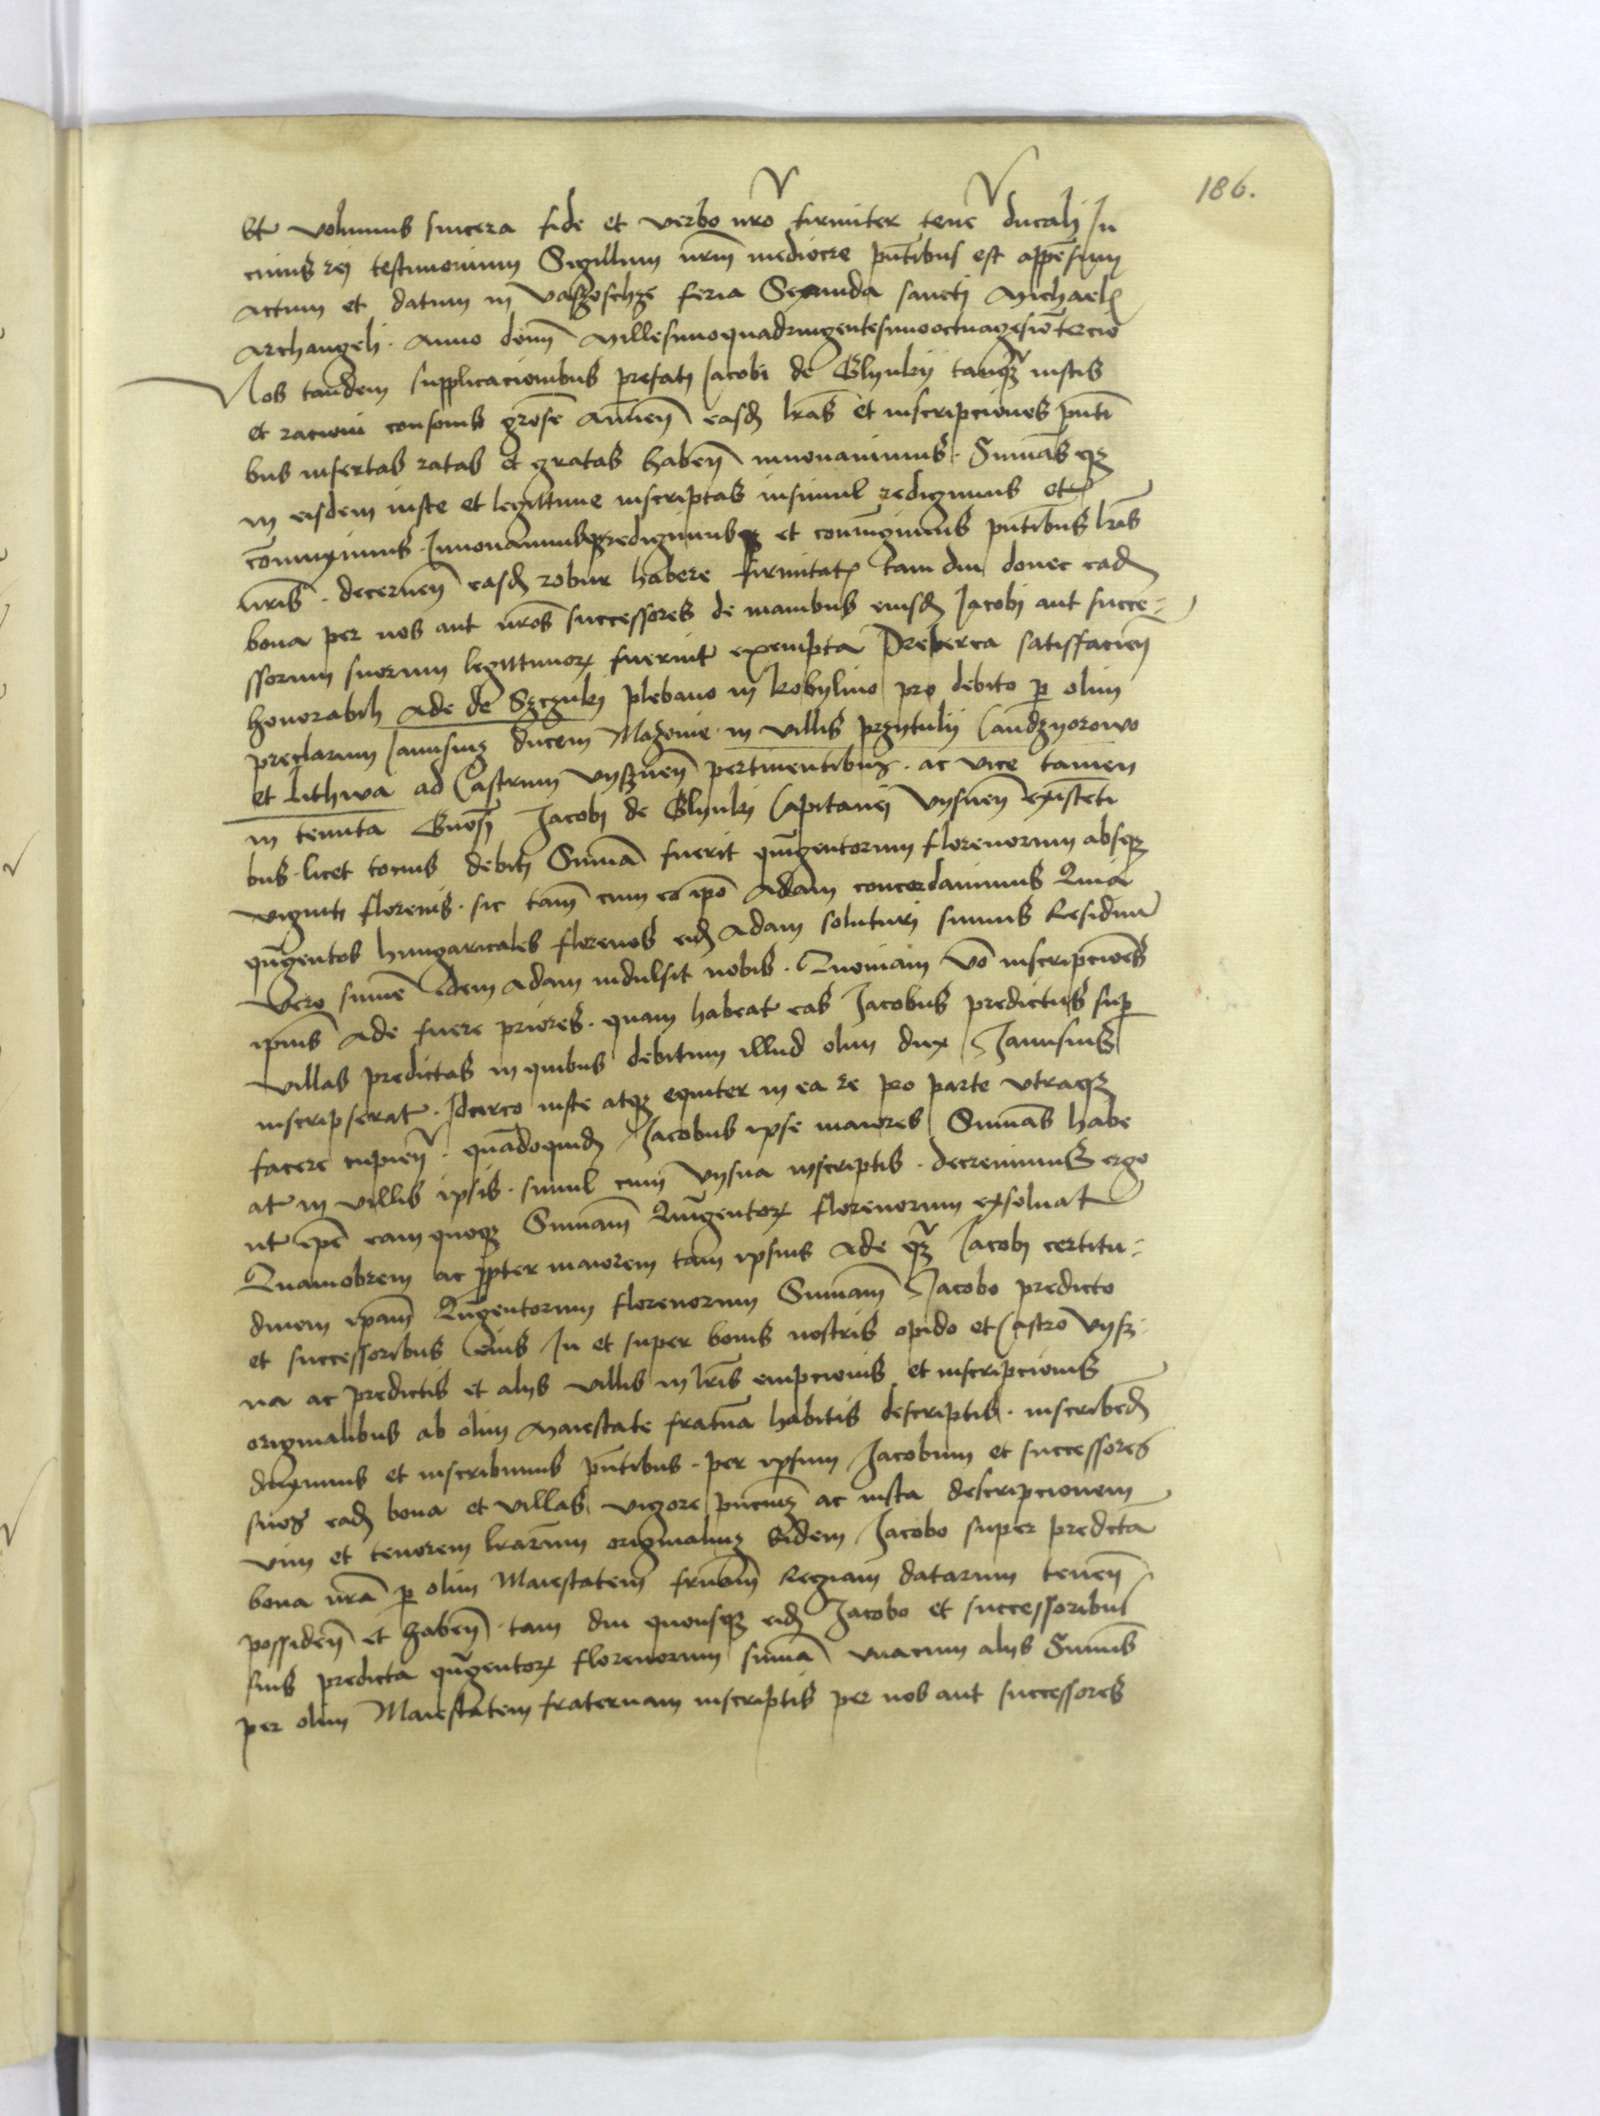 186.
Et volumus sincera fide et verbo nro firmiter tene ducali In
cuius rei testimonium Sigillum nrm mediocre pntibus est appensum
Actum et datum in feria Secunda sancti Michael
Archangeli. Anno domi Millesimoquadringentesimooctuagesio tercio
Nos tandem supplicacionibus prefati Jacobi de Glynky tanqz iustis
et racioni consonis grose annuen easd lras et inscripciones pnti
bus insertas ratas et gratas haben innouauimus. Sumas qz
in eisdem iuste et legittime inscriptas insimul redigimus et
coniungimus. Innouamusqz redigimusqz et coniungimus pntibus lris
nris. decernen easd robur habere firmitat tam diu donec ead
bona per nos aut nros successores de manibus eiusd Jacobi aut succe-
ssorum suorum legittimor fuerint exempta Preterea satisfacien
honorabili Ade de plebano in Kobylino pro debito p olim
preclarum Janusiuz ducem Mazouie in villis Przytuly Candzyorowo
et Lithwa ad Castrum Vysznen pertinentibus. ac vice tamen
in tenuta Gnosi Jacobi de Glynky Capitanei Vysnen existenti
bus. licet tocius debiti Suma fuerit quigentorum florenorum absqz
viginti florenis. sic tam cum eo ipo Adam concordauimus Quia
qugentos hungaricales florenos eid Adam soluturi sumus Residuu
vero sume idem Adam indulsit nobis. Quoniam vo inscripciones
ipius Ade fuere priores. quam habeat eas Jacobus predictus sup
villas predictas in quibus debitum illud olim dux Janusius
inscripserat. Idcirco iuste atqz equiter in ea re pro parte vtraqz
facere cupien. quadoquid Jacobus ipse maiores Sumas habe
at in villis ipsis. simul cum Vysna inscriptis. decreuimus ergo
ut ipe eam quoqz Sumam Quigentor florenorum exsoluat
Quamobrem ac ppter maiorem tam ipsius Ade qz Jacobi certitu-
dinem ipam Quigentorum florenorum Sumam Jacobo predicto
et successoribus eius In et super bonis nostris opido et Castro Vysz-
na ac predictis et alys villis in lris empcionis et inscripcionis
originalibus ab olim Maiestate fratna habitis descriptis. inscribed
duximus et inscribimus pntibus. per ipsum Jacobum et successores
suos ead bona et villas vigore pnciuz ac iusta descripcionem
vim et tenorem lrarum originaliuz Eidem Jacobo super predicta
bona nra p olim Maiestatem frnam Regiam datarum tenen
possiden et haben. tam diu quousqz eid Jacobo et successoribus
suis predicta qugentor florenorum suma vnacum alys Sumis
per olim Maiestatem fraternam inscriptis per nos aut successores